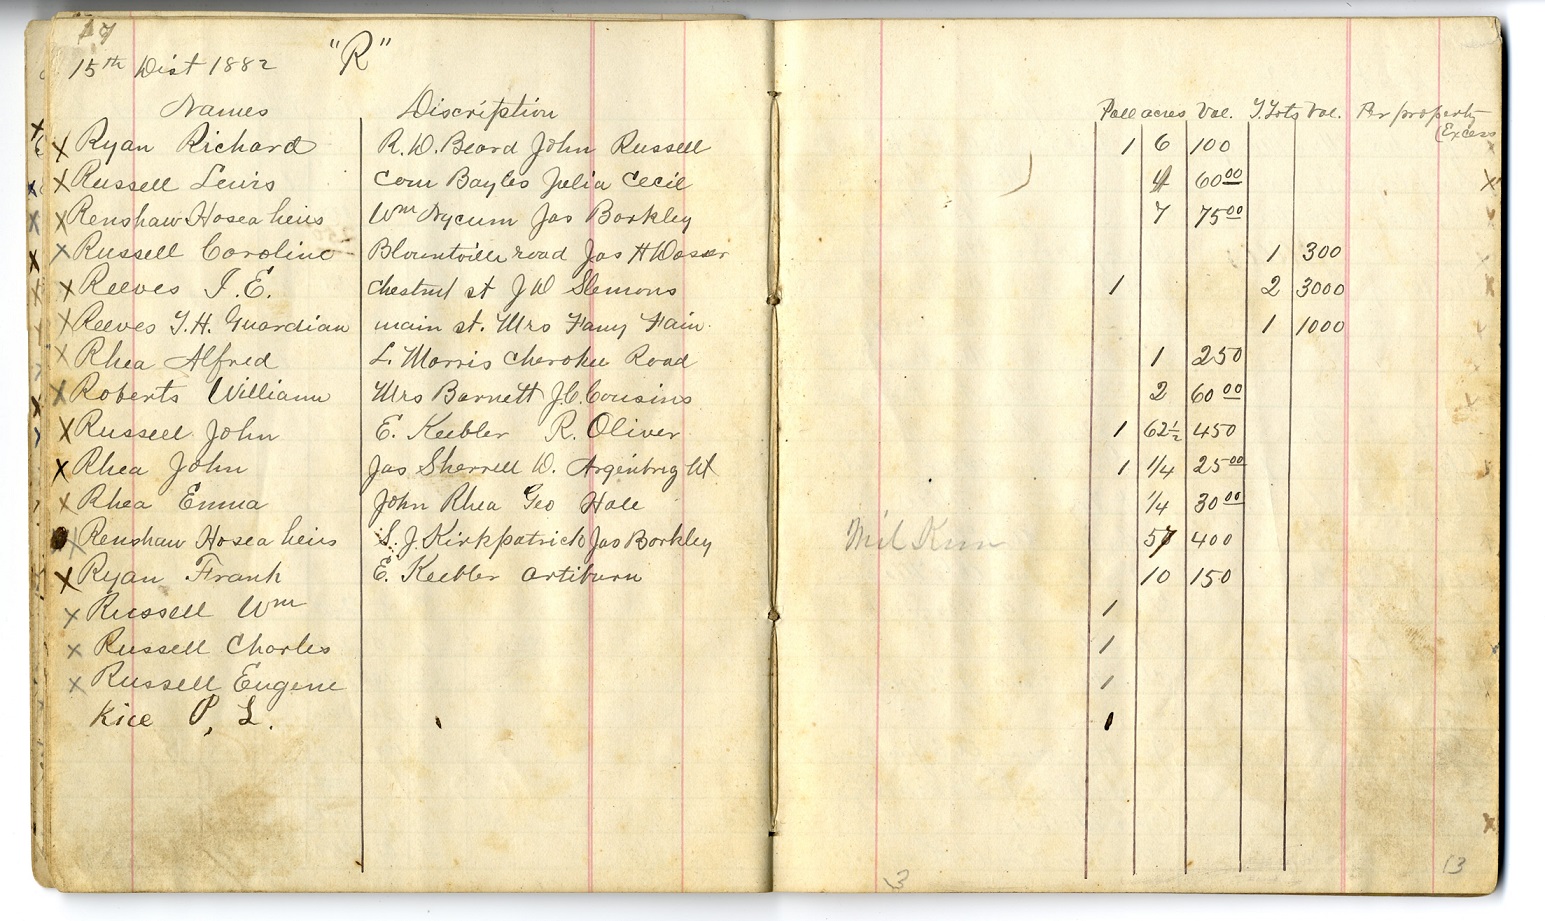 17
15th Dist 1882 "R"
Names Discription Poll acres Val. T. Lots Val. Per property
(Excess
x Ryan Richard R. W. Beard John Russell 1 6 100
x Russell Lewis Com Bayles Julia Cecil 4 60 00
x Renshaw Hosea heirs Wm Nycum Jas Barkley 7 75 00
x Russell Caroline Blountville road Jas H 1 300
x Reeves I. E. Chestnut st J W Slemons 1 2 3000
x Reeves T. H. Guardian main st. Mrs Fany Fain. 1 1000
x Rhea Alfred L. Morris Cherokee Road 1 250
x Roberts William Mrs Barnett J. C. Cousins 2 60 00
x Russell John E. Keebler R. Oliver 1 62½ 450
x Rhea John Jas Sherrell W. Argenbright 1 1/4 25 00
x Rhea Emma John Rhea Geo Hale 1/4 30 00
x Renshaw Hosea heirs S. J. Kirkpatrick Jas Barkley 57 400
x Ryan Frank E. Keebler artiburn 10 150
x Russell Wm 1
x Russell Charles 1
x Russell Eugene 1
Rice P, L. 1
3
13